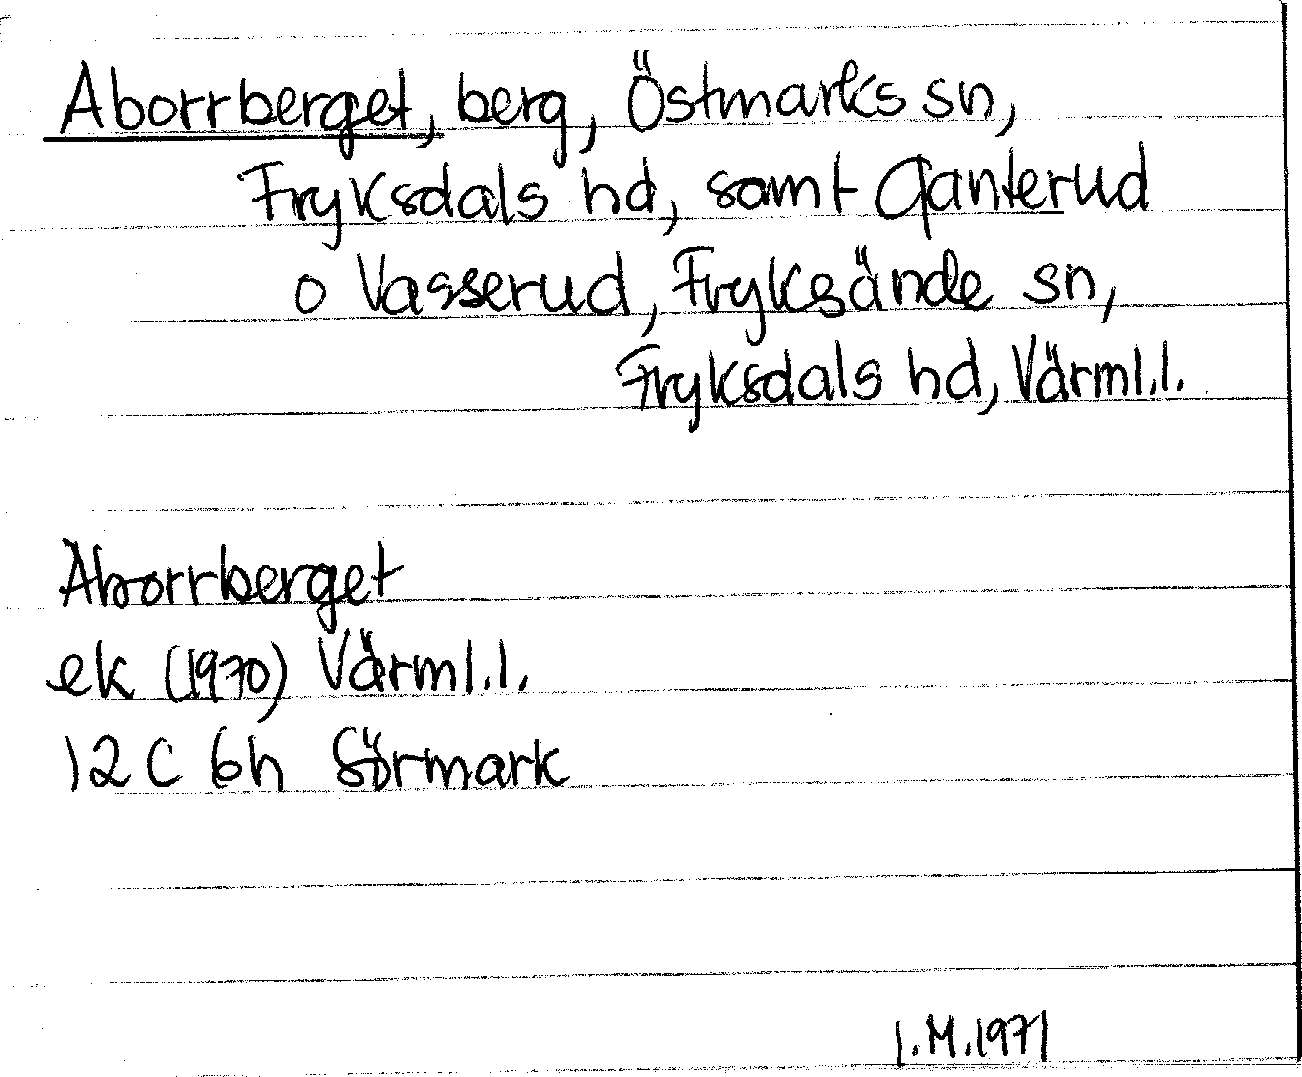 Aborrberget, berg, Östmarks sn,
Fryksdals hd, samt Qanterud
o Vasserud, Fryksände sn,
Fryksdals hd, Värml.l.
Aborrberget
ek (1970) Värml.l.
12 C 6h Sörmark
I.M.1971